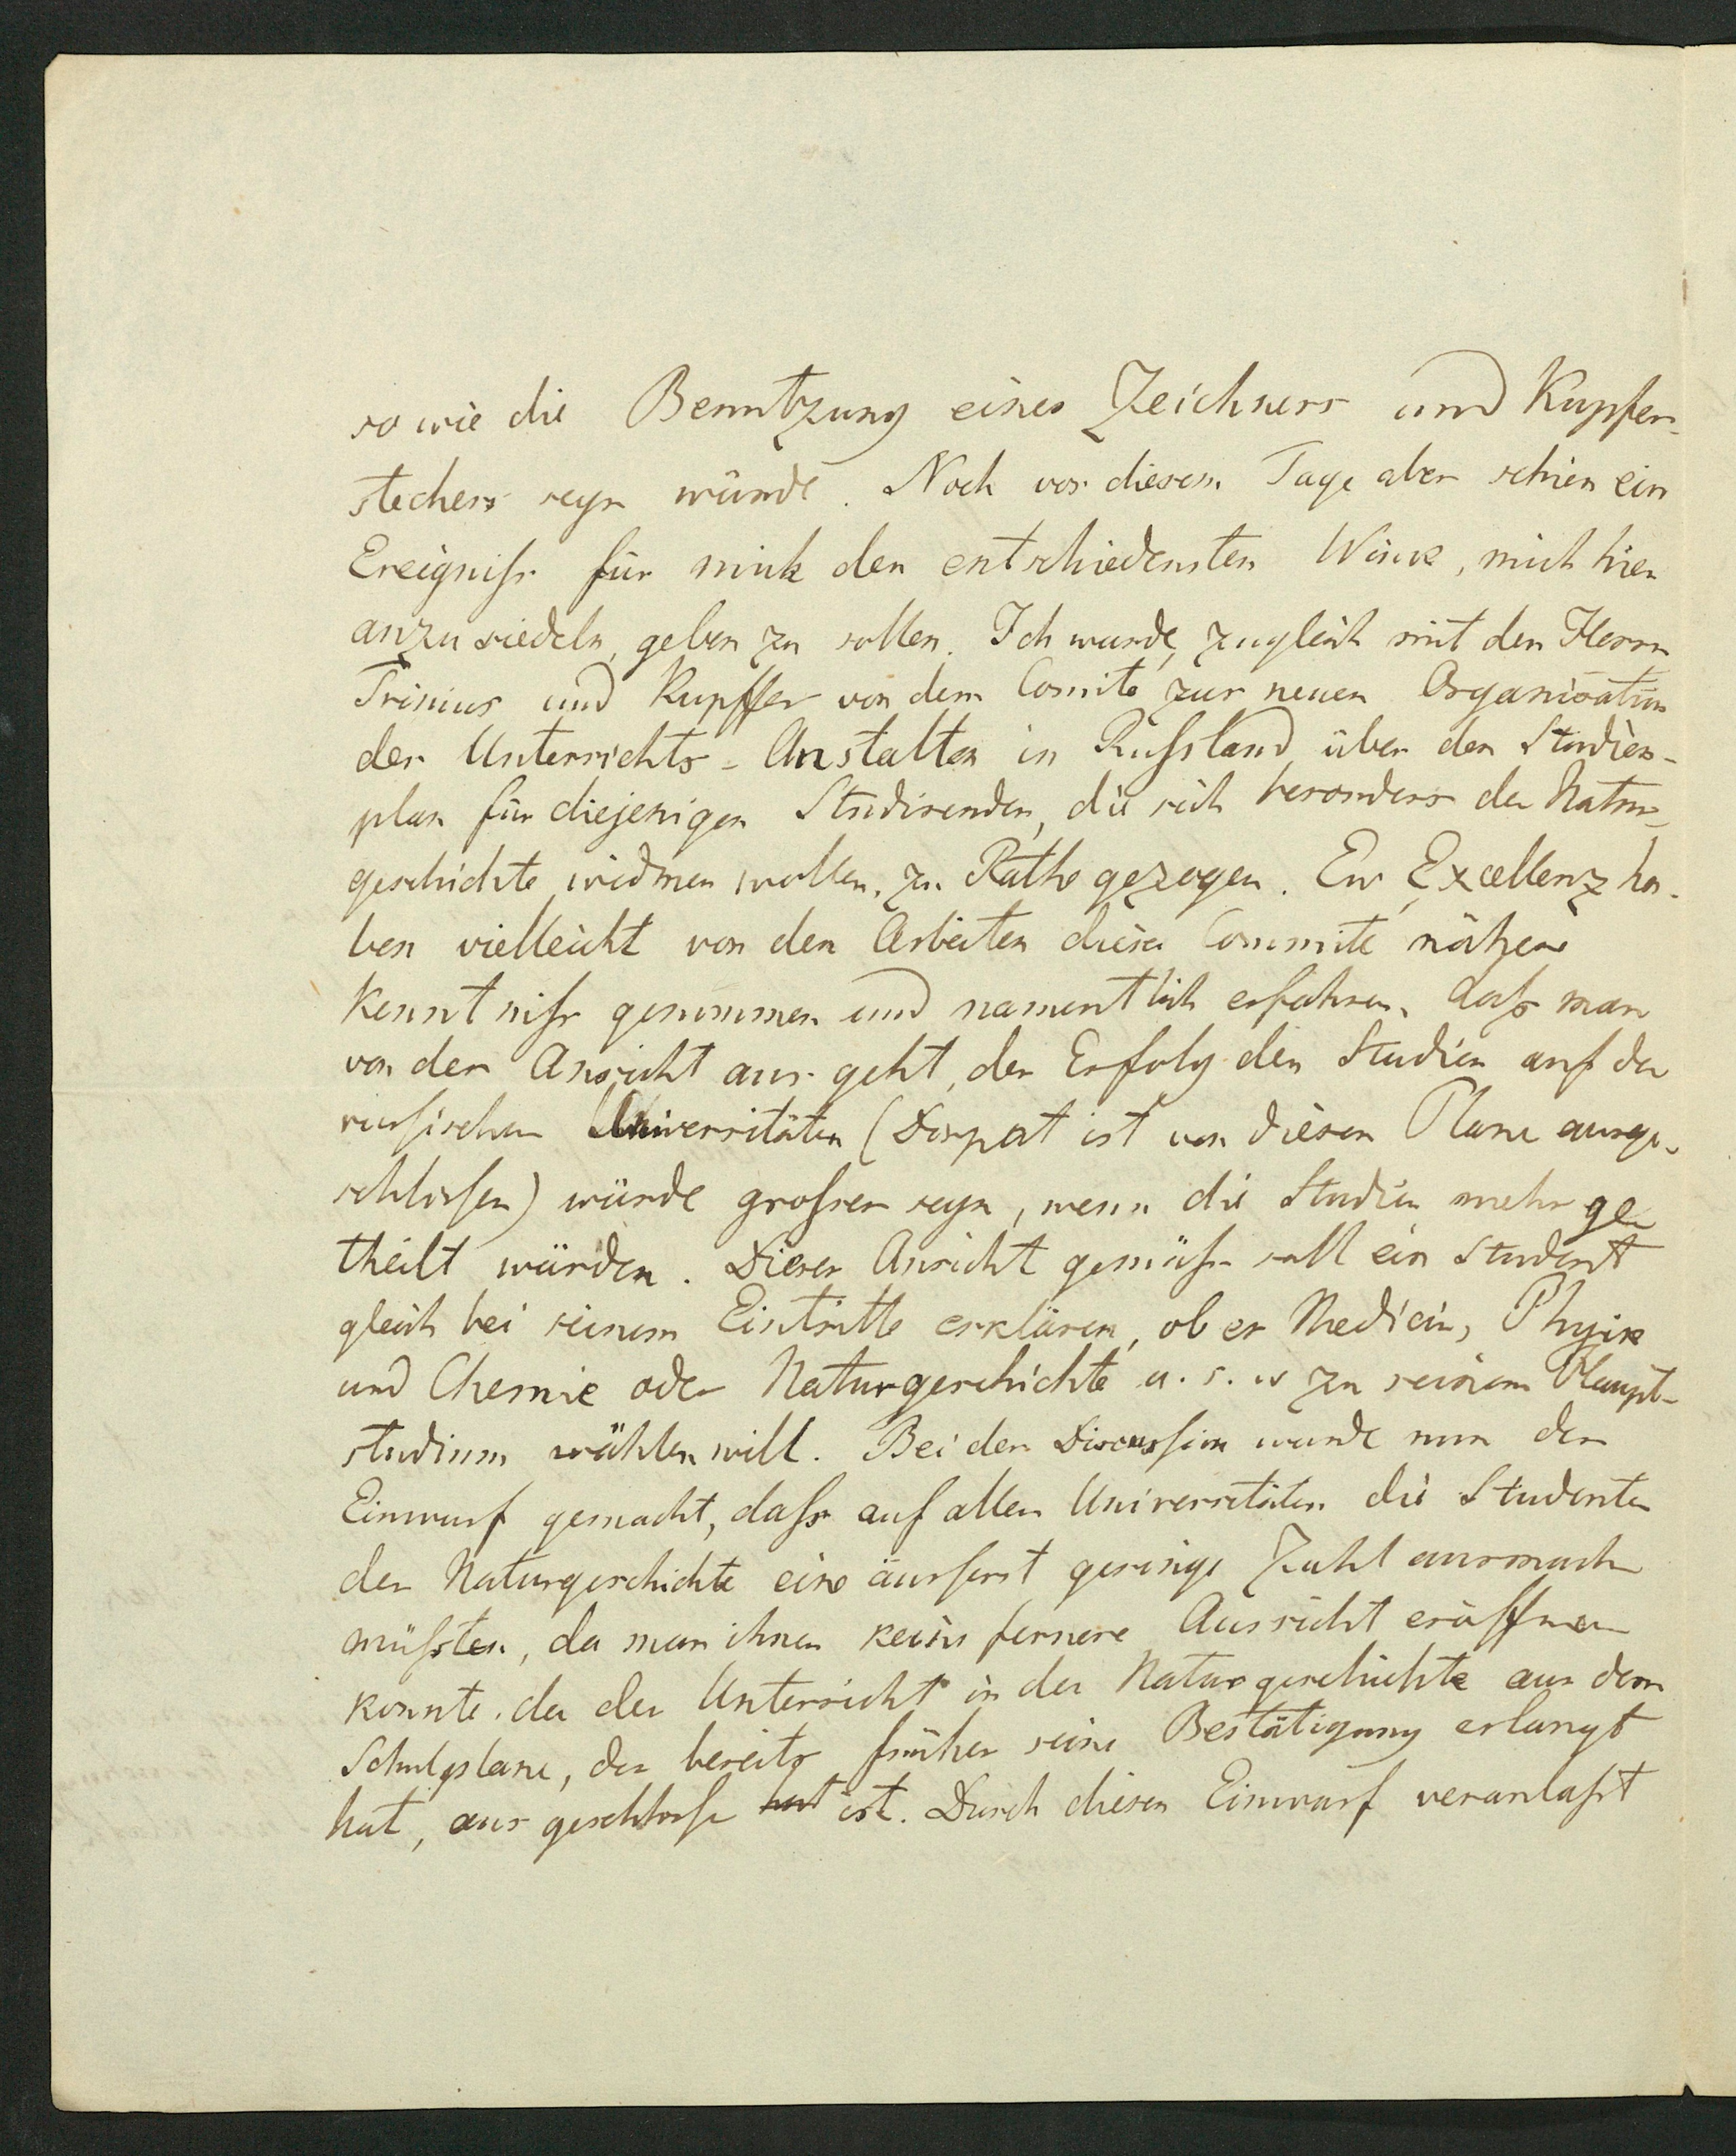 so wie die Benutzung eines Zeichners und Kupfer-
stechers seyn würde. Noch vor diesem Tage aber schien ein
Ereigniſs für mich den entschiedensten Wink, mich hier
anzusiedeln, geben zu sollen. Ich wurde, zugleich mit den Herrn
Trinius und Kupffer von dem Comité zur neuen Organisation
der Unterrichts-Anstalten in Ruſsland über den Studien-
plan für diejenigen Studirenden, die sich besonders der Natur-
geschichte widmen wollen, zu Rathe gezogen. Ew Excellenz ha-
ben vielleicht von den Arbeiten dieser Committé nähere
Kenntniſs genommen und namentlich erfahren, daſs man
von der Ansicht aus geht, der Erfolg der Studien auf den
ruſsischen Universitäten (Dorpat ist von diesem Plane ausge-
schloſsen) würde groſser seyn, wenn die Studien mehr ge
theilt würden. Dieser Ansicht gemäſs soll ein Student
gleich bei seinem Eintritte erklären, ob er Medicin, Physik
und Chemie oder Naturgeschichte u. s. w zu seinem Haupt-
studium wählen will. Bei der Discuſsion wurde nun der
Einwurf gemacht, daſs auf allen Universitäten die Studenten
der Naturgeschichte eine äusſerst geringe Zahl ausmachen
müſsten, da man ihnen keine fernere Aussicht eröffnen
konnte, da der Unterricht in der Naturgeschichte aus dem
Schulplane, der bereits früher seine Bestätigung erlangt
hat, ausgeschloſsen hat ist. Durch diesen Einwurf veranlaſst